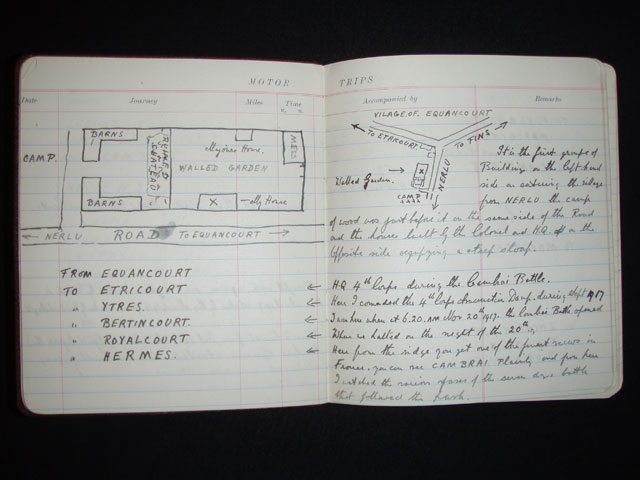 MOTOR TRIPS
Date Journey Miles Time
Accompanied by Remarks
CAMP.
BARNS
BARNS
RUINED
WALLED GARDEN
House.
X
My House
NERLU ROAD TO EQUANCOURT
FROM EQUANCOURT
TO ETRICOURT
" YTRES.
" BERTINCOURT.
" ROYALCOURT.
" HERMES.
VILAGE OF EQUANCOURT
TO ETRICOURT.
TO FINS
NERLU
Walled Garden.
CAMP
It is the first group of
Building on the left hand
side on entering the village
from NERLU the camp
of wood was just before it on the same side of the Road
and the house built by the Colonel and H.Q. on the
Opposite side occupying a steep slope.
H.Q. 4th Corps during the Cambrai Battle.
Here I comanded the 4th Corps Dump. during Sept 1917
I was here when at 6.20. AM Nov 20th 1917. the Cambrai Battle opened
Where we halted on the night of the 20th
Here from the ridge you get one of the finest views in
France. you can see CAMBRAI Plainly and from here
I watched the various phases of the seven days battle
that followed the push.